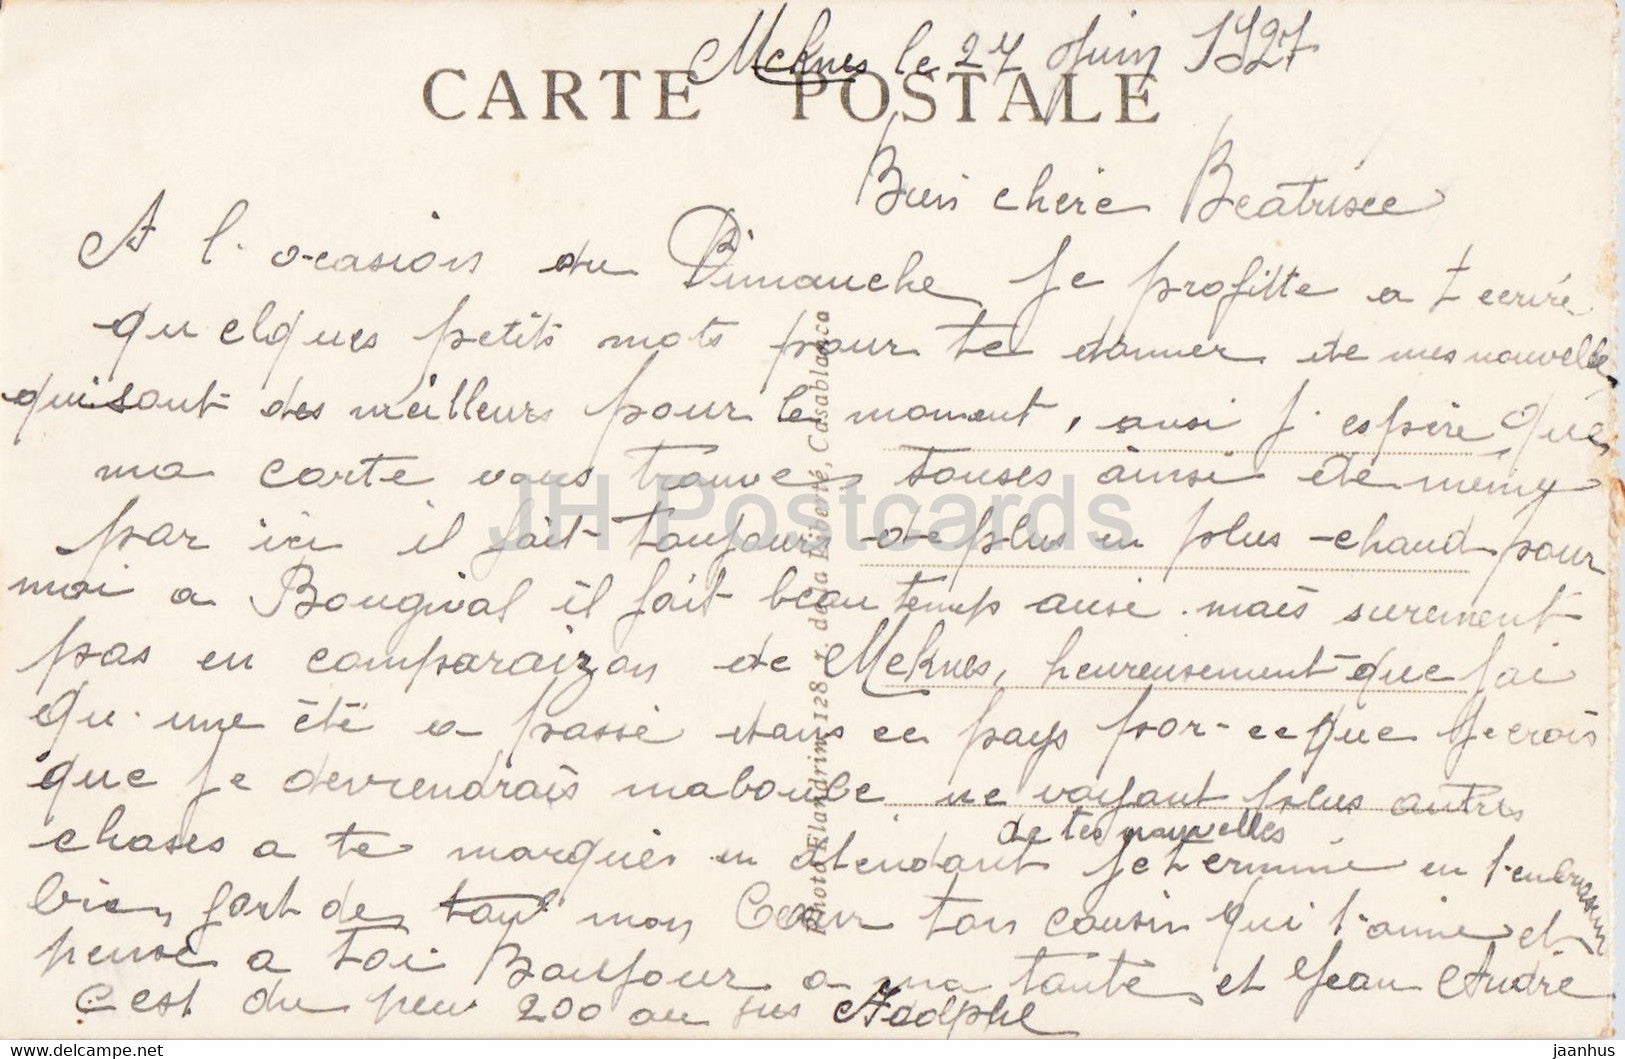 Meknes le 27 Juin 1927
CARTE POSTALE
Bien chère Beatrisée
A l'ocasion du Dimanche je profitte a t ecrire
quelques petits mots pour te donner de mes nouvelles
qui sont des meilleurs pour le moment, ausi j'espère que
ma carte vous trouve touses ainsi de même
par ici il fait toujours de plus en plus chaud pour
moi a Bougival il fait beau temps ausi mais surement
pas en comparaizon de Meknes, heureusement que jai
qu'une été a passé dans ce pays par-ce que je crois
que je devrendrais maboube ne voyant plus autres
choses a te marquer en atendant de tes nouvelles je termine en t'embrassant
bien fort de tout mon Cœur ton cousin qui t'aime et
pense a toi Bonjour a ma tante et Jean André
c'est du peu 200 au jus Adolphe
Photo Flandrin, 128, r. de la Liberté, Casablanca
JH Postcards
jaanhus
www.delcampe.net